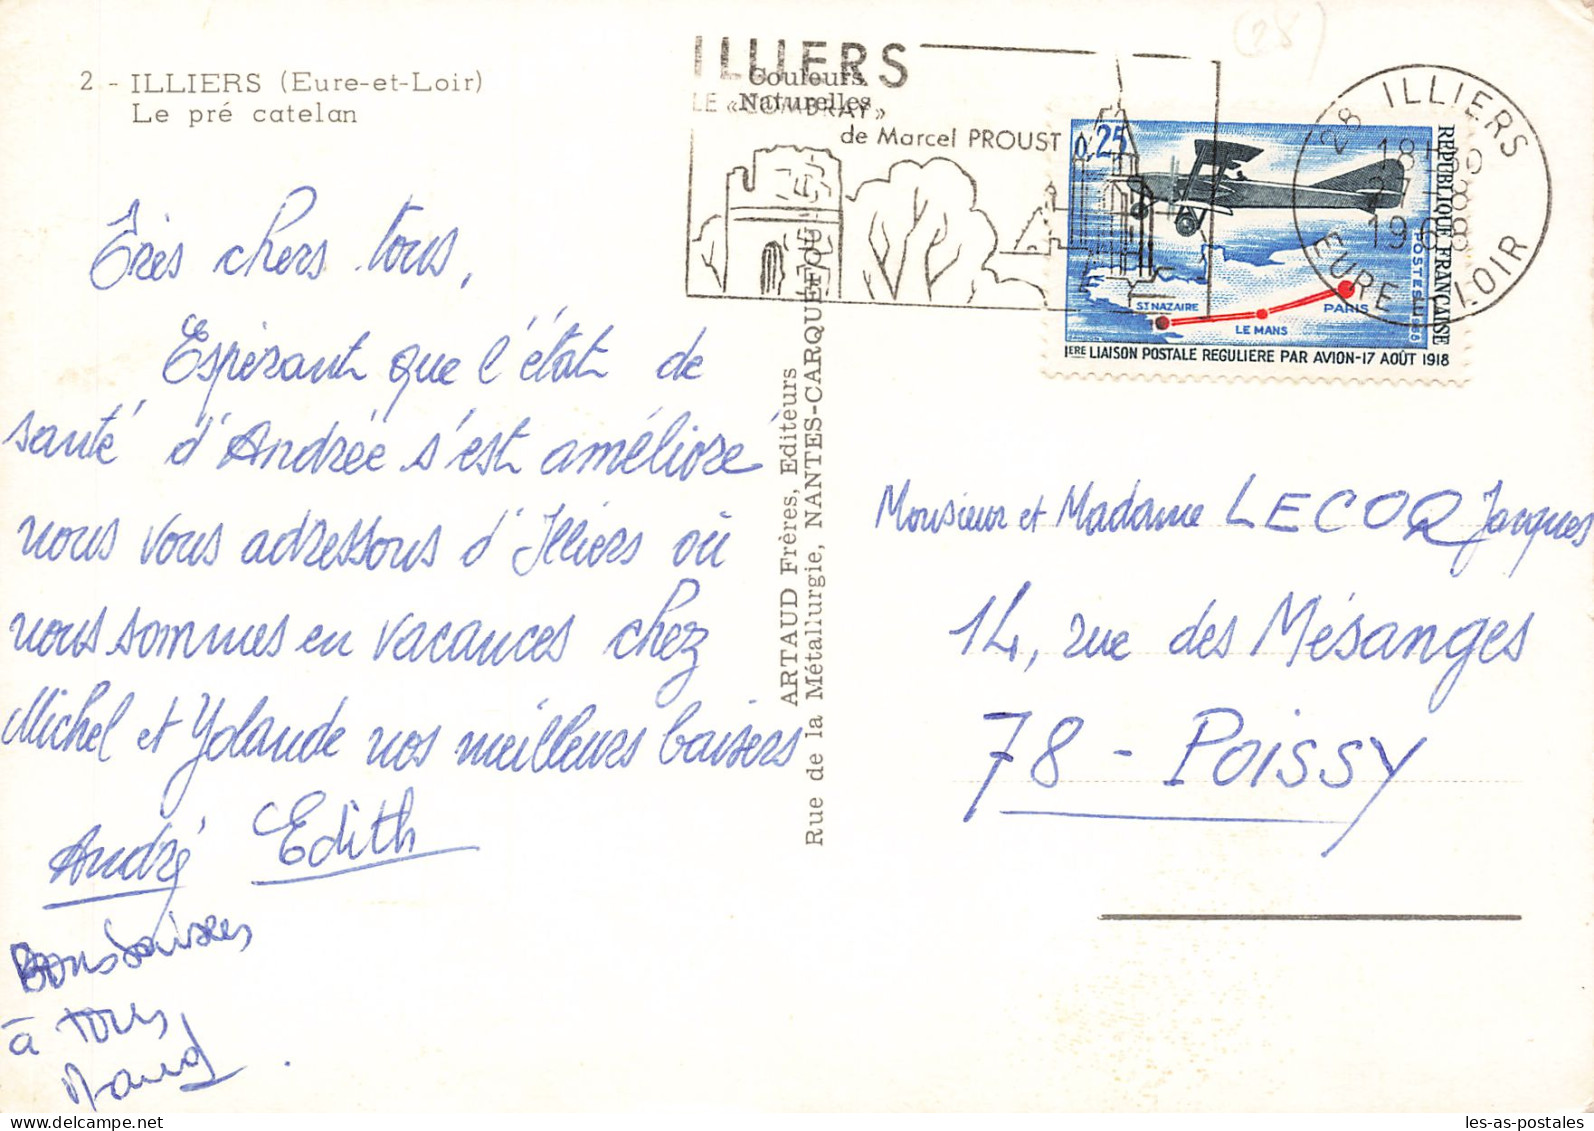 2 - ILLIERS (Eure-et-Loir)
Le pré catelan
Très chers tous,
Espérant que l'état de
santé d'Andrée s'est amélioré
nous vous adressons d'Illiers où
nous sommes en vacances chez
Michel et Yolande nos meilleurs baisers
André Edith
Bons baisers
à tous
ILLIERS
LE «COMBRAY»
de Marcel PROUST
Couleurs
Naturelles
ARTAUD Frères, Editeurs
Rue de la Métallurgie, NANTES-CARQUEFOU
(28)
28 ILLIERS
18H30
27 8
1968
EURE-ET-LOIR
0,25
REPUBLIQUE FRANÇAISE
POSTES 1968
ST NAZAIRE
LE MANS
PARIS
1ERE LIAISON POSTALE REGULIERE PAR AVION-17 AOÛT 1918
Monsieur et Madame LECOQ Jacques
14, rue des Mésanges
78 - Poissy
les-as-postales